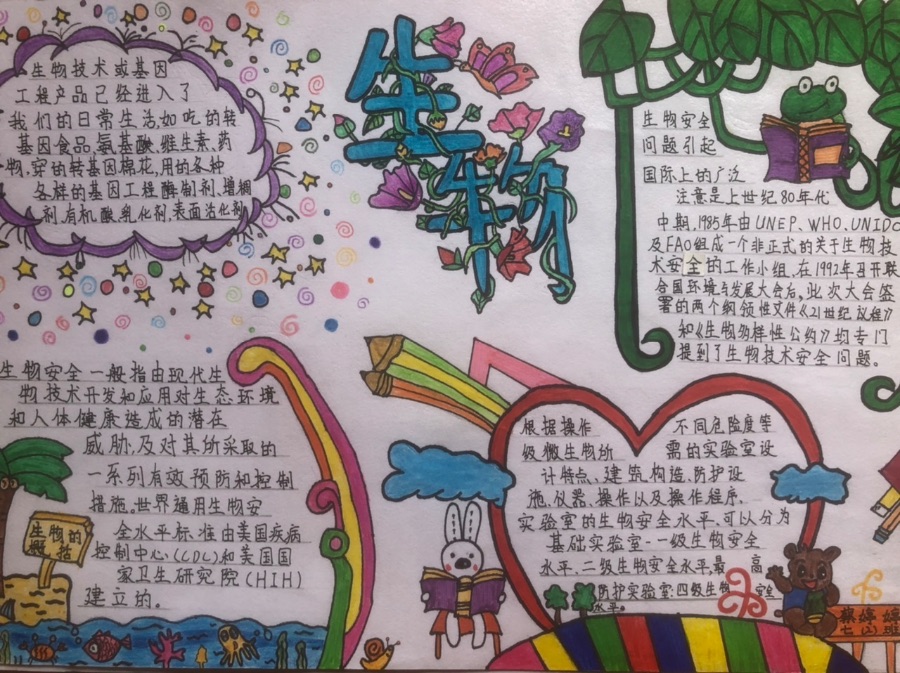 生物
生物技术或基因
工程产品已经进入了
我们的日常生活,如吃的转
基因食品、氨基酸、维生素、药
物,穿的转基因棉花,用的各种
各样的基因工程酶制剂、增稠
剂、有机酸、乳化剂、表面活化剂
生物安全
问题引起
国际上的广泛
注意是上世纪80年代
中期,1985年由UNEP、WHO、UNIDO
及FAO组成一个非正式的关于生物技
术安全的工作小组,在1992年召开联
合国环境与发展大会后,此次大会签
署的两个纲领性文件《21世纪议程》
和《生物多样性公约》均专门
提到了生物技术安全问题。
生物安全一般指由现代生
物技术开发和应用对生态环境
和人体健康造成的潜在
威胁,及对其所采取的
一系列有效预防和控制
措施。世界通用生物安
全水平标准由美国疾病
控制中心(CDC)和美国国
家卫生研究院(HIH)
建立的。
生物的
根据操作 不同危险度等
级微生物所 需的实验室设
计特点、建筑构造、防护设
施、仪器、操作以及操作程序,
实验室的生物安全水平,可以分为
基础实验室-一级生物安全
水平、二级生物安全水平、最 高
防护实验室:四级生物 安全
水平。
七(2)班